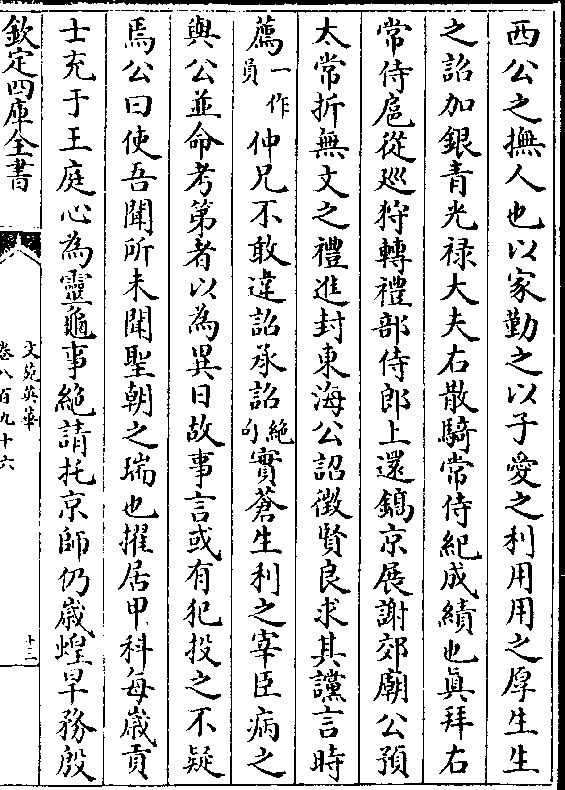 西公之撫人也以家勤之以子愛之利用用之厚生生
之詔加銀青光禄大夫右散騎常侍紀成績也眞拜右
常侍扈從廵狩轉禮部侍郎上還鎬京展謝郊廟公預
太常折無文之禮進封東海公詔徵賢良求其讜言時
薦一作員仲兄不敢違詔承詔絶句實蒼生利之宰臣病之
與公並命考第者以為異日故事言或有犯投之不疑
焉公曰使吾聞所未聞聖朝之瑞也擢居甲科每嵗貢
士充于王庭心為靈龜事絶請托京師仍嵗蝗旱務殷
欽定四庫全書
文苑英華
卷八百九十六
十三